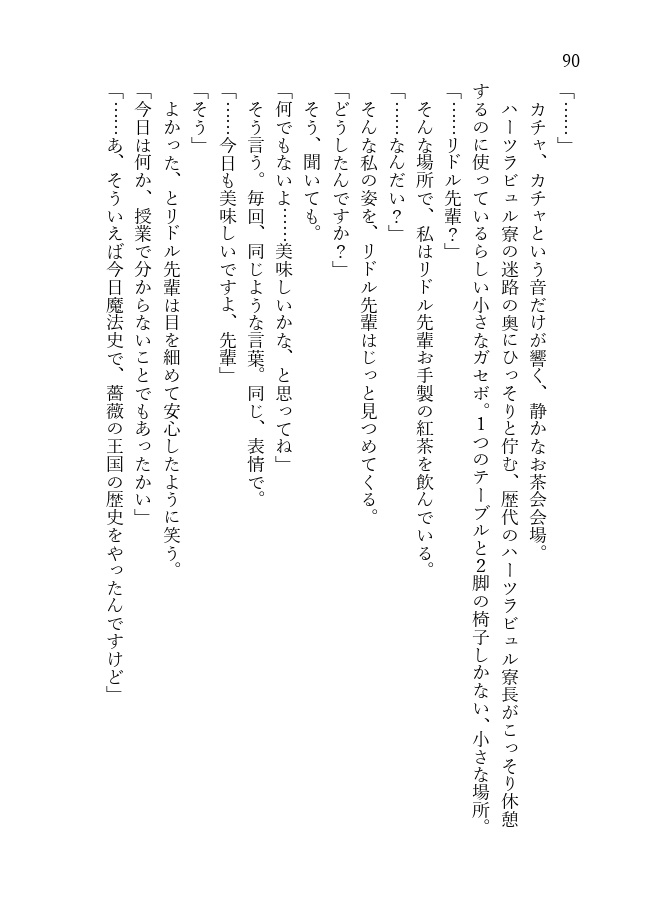 90
「……」
カチャ、カチャという音だけが響く、静かなお茶会会場。
ハーツラビュル寮の迷路の奥にひっそりと佇む、歴代のハーツラビュル寮長がこっそり休憩
するのに使っているらしい小さなガセボ。１つのテーブルと２脚の椅子しかない、小さな場所。
「……リドル先輩？」
そんな場所で、私はリドル先輩お手製の紅茶を飲んでいる。
「……なんだい？」
そんな私の姿を、リドル先輩はじっと見つめてくる。
「どうしたんですか？」
そう、聞いても。
「何でもないよ……美味しいかな、と思ってね」
そう言う。毎回、同じような言葉。同じ、表情で。
「……今日も美味しいですよ、先輩」
「そう」
よかった、とリドル先輩は目を細めて安心したように笑う。
「今日は何か、授業で分からないことでもあったかい」
「……あ、そういえば今日魔法史で、薔薇の王国の歴史をやったんですけど」